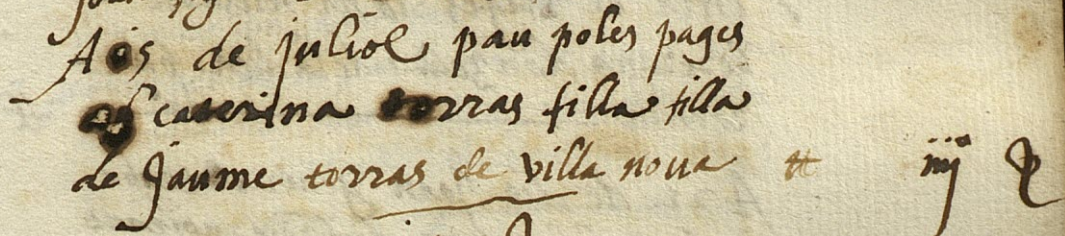 A 05 de juliol pau poles pages
ab caterina torras filla filla
de Jaume torras de villa nova tt iiij